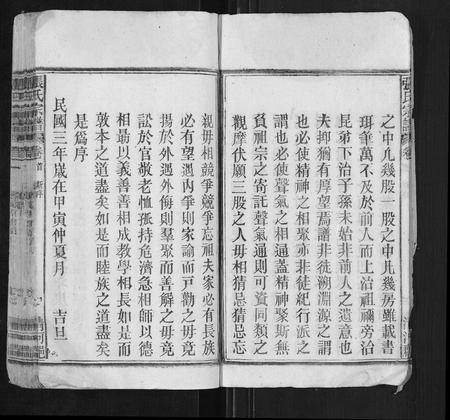 張氏宗譜
卷首
之中凡幾股一股之中凡幾房雖載書
珥筆萬不及於前人而上治祖禰旁治
昆弟下治子孫未始非前人之遺意也
夫抑猶有厚望焉譜非徒溯淵源之謂
也必使精神之相聚亦非徒紀行派之
謂也必使聲氣之相通蓋精神聚斯無
負祖宗之寄託聲氣通則可資同類之
觀摩伏願三股之人毋相猜忌猜忌忘
親毋相競爭競爭忘祖夫家必有長族
必有望遇內爭則家諭而戶勸之毋竟
揚於外遇外侮則羣聚而善解之毋竟
訟於官敬老恤孤持危濟急相師以德
相勗以義善善相成教學相長如是而
敦本之道盡矣如是而睦族之道盡矣
是為序
民國三年歲在甲寅仲夏月 吉旦
張氏宗譜
卷首